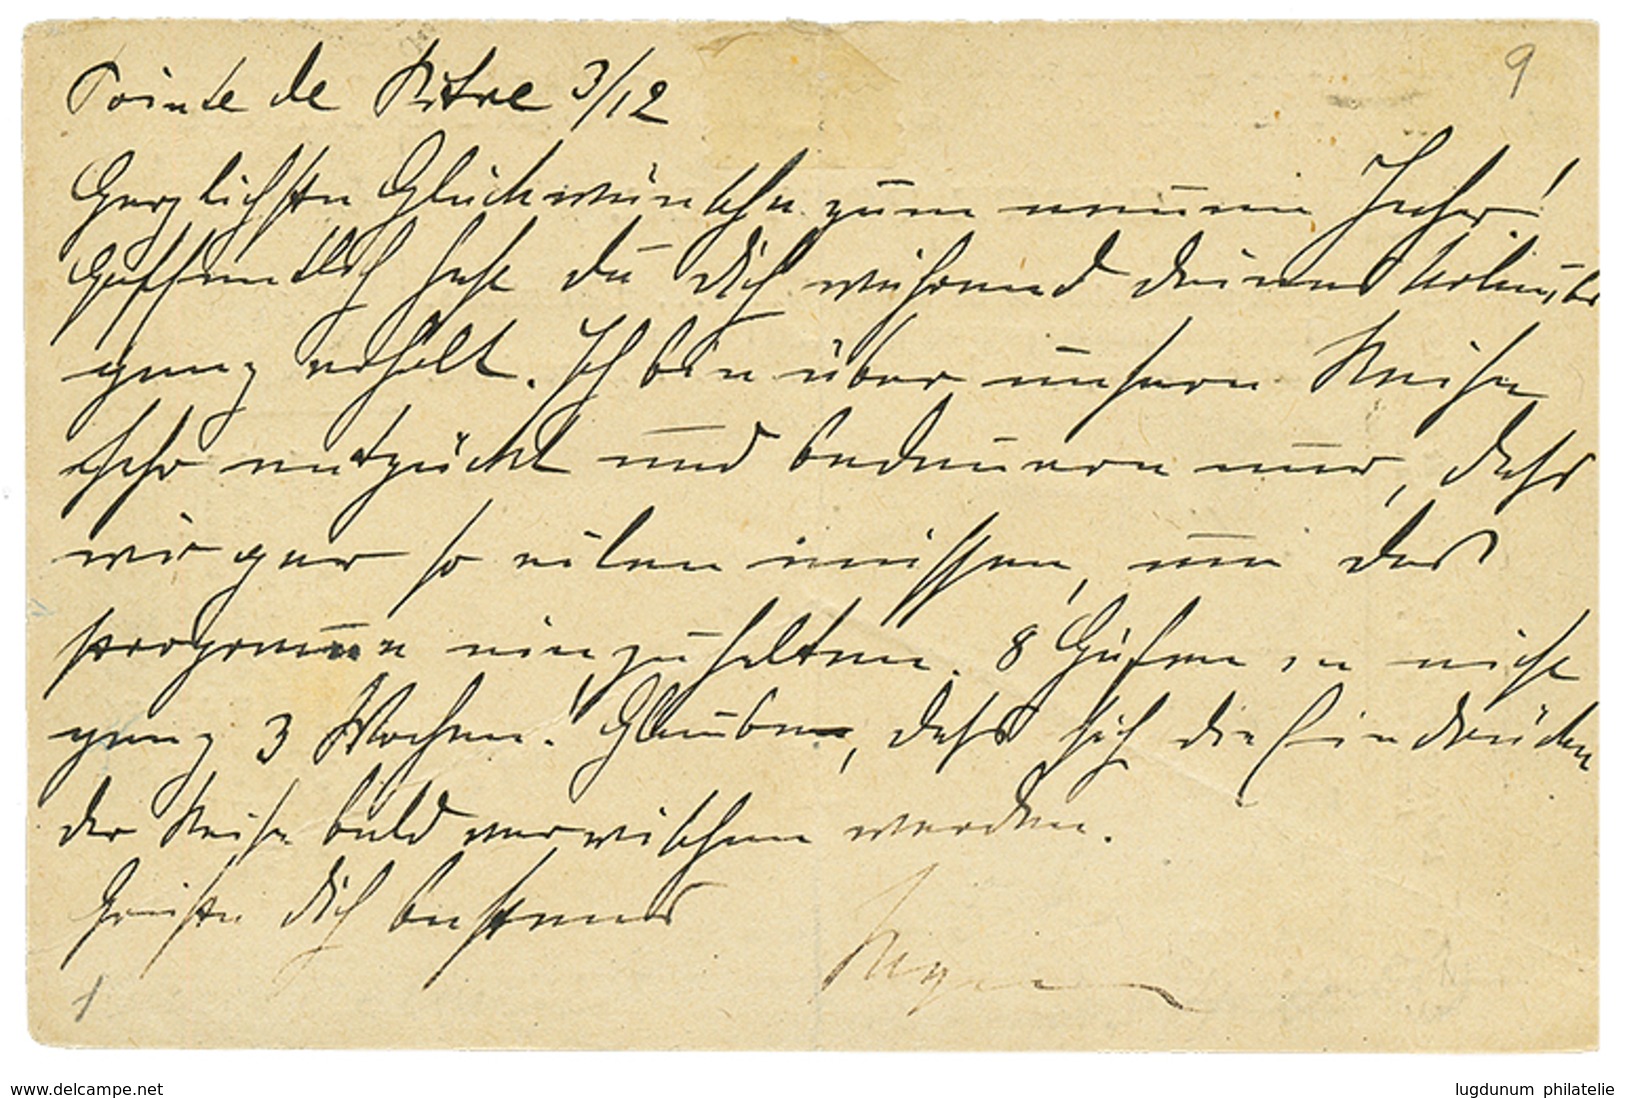 Pointe de Pitre 3/12
9
Herzlichsten Glückwünsche zum neuen Jahr!
Hoffentlich hast du Dich während deines Urlaubs
ganz erholt. Ich bin über unsere Reise
sehr entzückt und bedauern nur, dass
wir gar so eilen müssen, um das
programm einzuhalten. 8 Häfen in nicht
ganz 3 Wochen! Glaube, dass sich die Eindrücke
der Reise bald verwischen werden.
Grüsse Dich bestens
1
www.delcampe.net
lugdunum philatelie